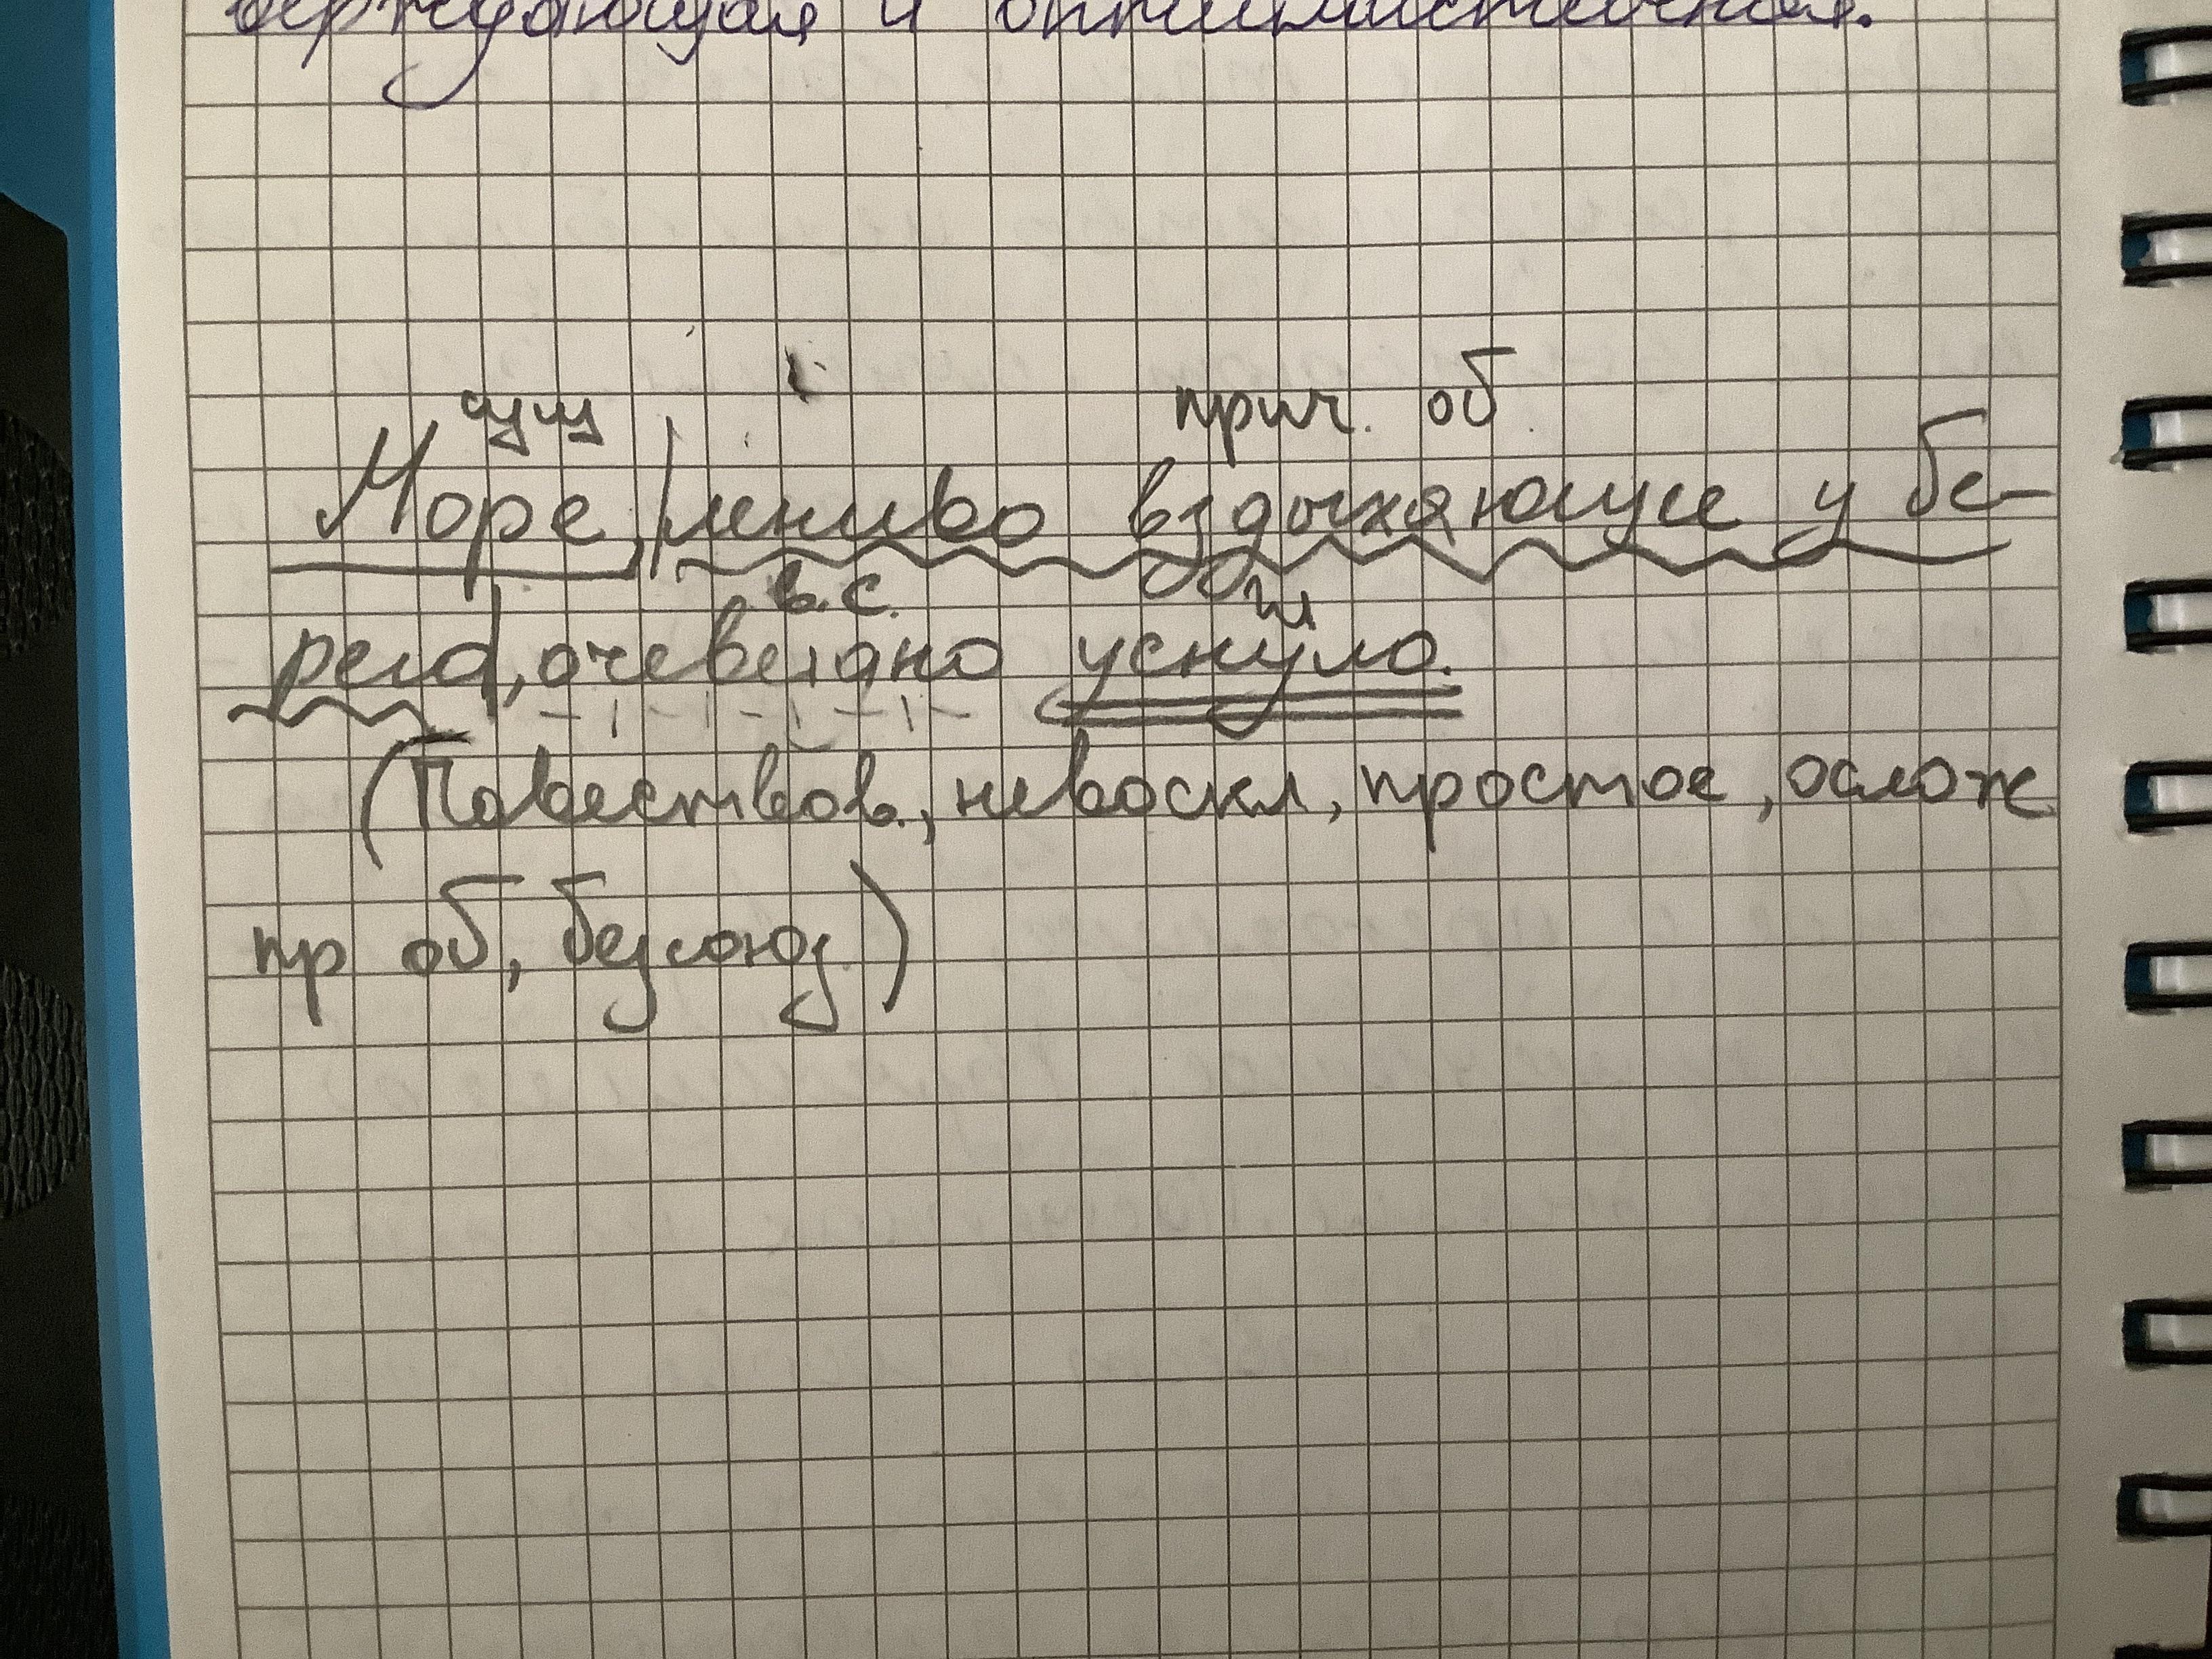 и оптимистичная.
сущ прич. об.
Море, лениво вздыхающее у бе-
в.с. гл
рега, очевидно уснуло.
(Повествов., невоскл, простое, ослож
пр об, безсоюз.)